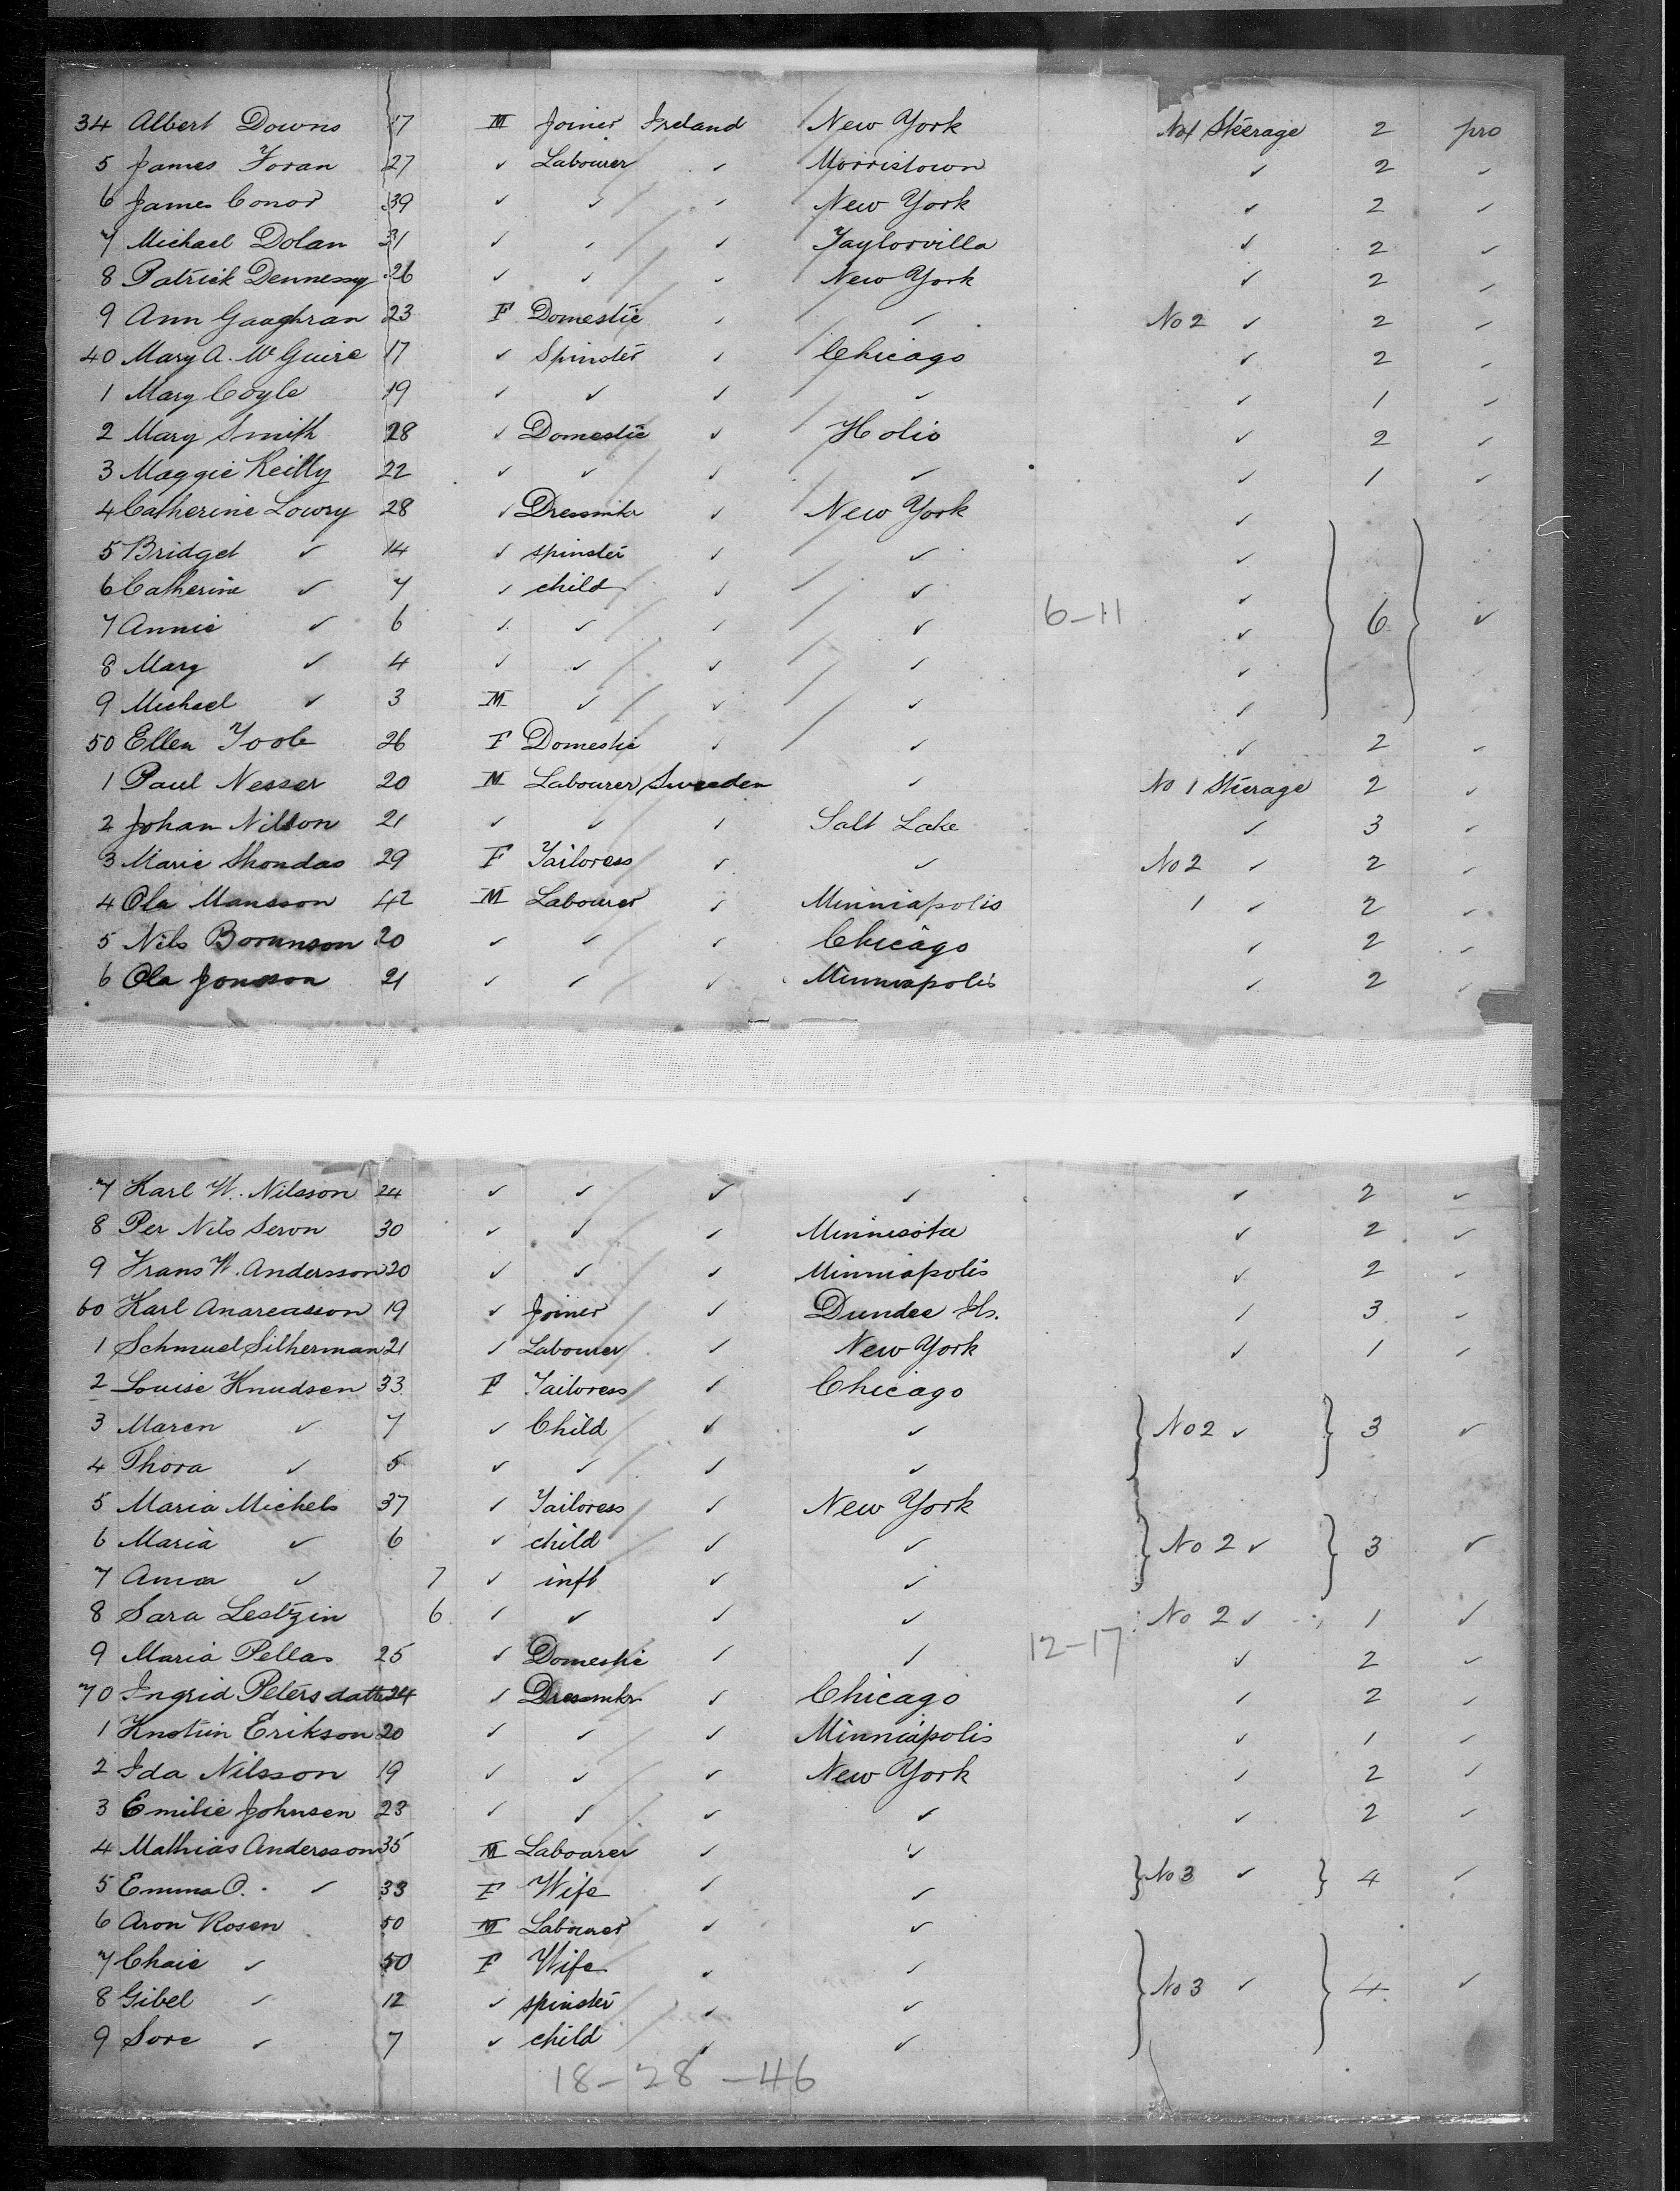 34 Albert Downs 17 M Joiner Ireland New York No 1 Steerage 2 pro
5 James Foran 27 ✓ Labourer ✓ Morristown ✓ 2 ✓
6 James Conor 39 ✓ ✓ ✓ New York ✓ 2 ✓
7 Michael Dolan 31 ✓ ✓ ✓ Taylorvilla ✓ 2 ✓
8 Patrick Dennessy 26 ✓ ✓ ✓ New York ✓ 2 ✓
9 Ann Gaaghran 23 F Domestic ✓ ✓ No 2 ✓ 2 ✓
40 Mary A. McGuire 17 ✓ Spinster ✓ Chicago ✓ 2 ✓
1 Mary Coyle 19 ✓ ✓ ✓ ✓ ✓ 1 ✓
2 Mary Smith 28 ✓ Domestic ✓ Holio ✓ 2 ✓
3 Maggie Reilly 22 ✓ ✓ ✓ ✓ ✓ 1 ✓
4 Catherine Lowry 28 ✓ Dressmkr ✓ New York ✓
5 Bridget ✓ 14 ✓ spinster ✓ ✓ ✓
6 Catherine ✓ 7 ✓ child ✓ ✓ ✓
7 Annie ✓ 6 ✓ ✓ ✓ ✓ 6-11 ✓ 6 ✓
8 Mary ✓ 4 ✓ ✓ ✓ ✓ ✓
9 Michael ✓ 3 M ✓ ✓ ✓ ✓
50 Ellen Toole 26 F Domestic ✓ ✓ ✓ 2 ✓
1 Paul Nesser 20 M Labourer Sweeden ✓ No 1 Steerage 2 ✓
2 Johan Nilson 21 ✓ ✓ ✓ Salt Lake ✓ 3 ✓
3 Marie Shondas 29 F Tailoress ✓ ✓ No 2 ✓ 2 ✓
4 Ola Mansson 42 M Labourer ✓ Minniapolis 1 ✓ 2 ✓
5 Nils 20 ✓ ✓ ✓ Chicago ✓ 2 ✓
6 Ola Jonsson 21 ✓ ✓ ✓ Minniapolis ✓ 2 ✓
7 Karl W. Nilsson 24 ✓ ✓ ✓ ✓ ✓ 2 ✓
8 Per Nils Seron 30 ✓ ✓ ✓ Minnesota ✓ 2 ✓
9 Frans W. Andersson 20 ✓ ✓ ✓ Minniapolis ✓ 2 ✓
60 Karl Anareasson 19 ✓ Joiner ✓ Dundee Ils. ✓ 3 ✓
1 Schmuel Silherman 21 ✓ Labourer ✓ New York ✓ 1 ✓
2 Louise Knudsen 33 F Tailoress ✓ Chicago
3 Maren ✓ 7 ✓ Child ✓ ✓ No 2 ✓ 3 ✓
4 Thora ✓ 5 ✓ ✓ ✓ ✓
5 Maria Michels 37 ✓ Tailoress ✓ New York
6 Maria ✓ 6 ✓ child ✓ ✓ No 2 ✓ 3 ✓
7 Anna ✓ 7 ✓ inft ✓ ✓
8 Sara Lestzin 6 ✓ ✓ ✓ ✓ No 2 ✓ 1 ✓
9 Maria Pellas 25 ✓ Domestic ✓ ✓ 12-17 ✓ 2 ✓
70 Ingrid Petersdatter 24 ✓ Dressmkr ✓ Chicago ✓ 2 ✓
1 Knotin Erikson 20 ✓ ✓ ✓ Minniapolis ✓ 1 ✓
2 Ida Nilsson 19 ✓ ✓ ✓ New York ✓ 2 ✓
3 Emilie Johnsen 23 ✓ ✓ ✓ ✓ ✓ 2 ✓
4 Mathias Andersson 35 M Labourer ✓ ✓
5 Emma O. ✓ 33 F Wife ✓ ✓ No 3 ✓ 4 ✓
6 Aron Rosen 50 M Labourer ✓ ✓
7 Chaie ✓ 50 F Wife ✓ ✓
8 Gibel ✓ 12 ✓ spinster ✓ ✓ No 3 ✓ 4 ✓
9 Sore ✓ 7 ✓ child ✓ ✓
18-28-46